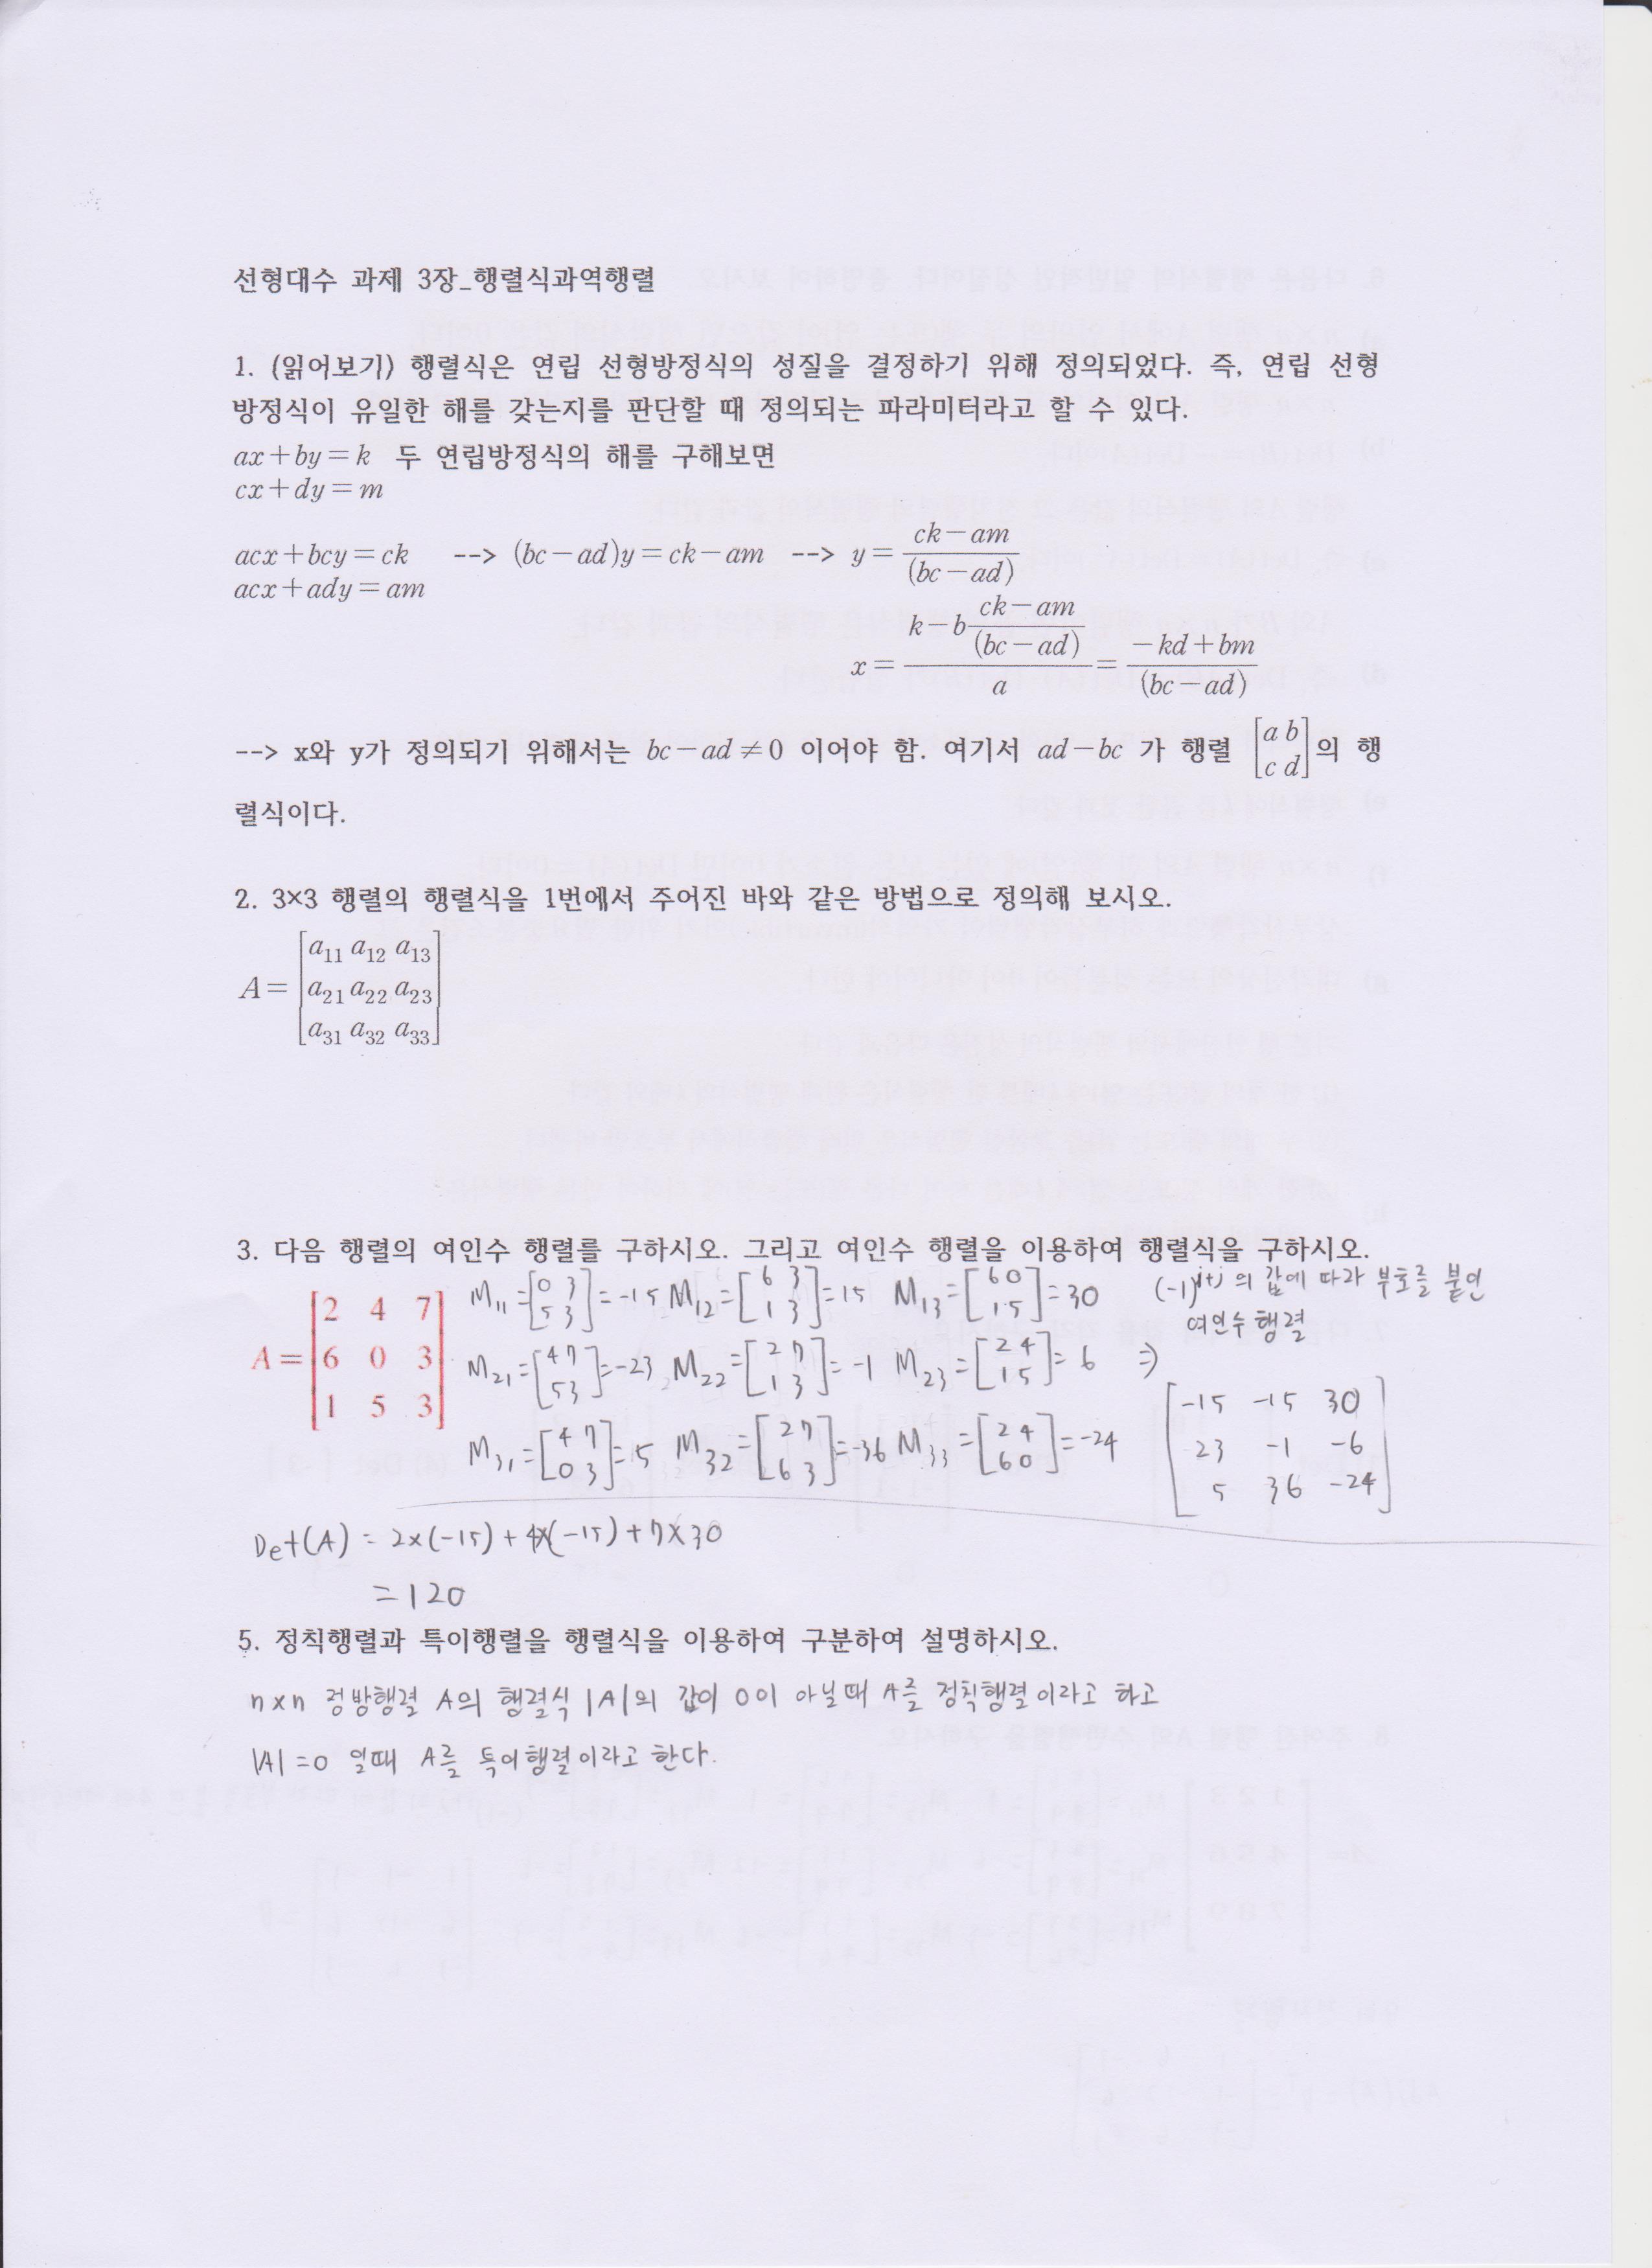 선형대수 과제 3장_행렬식과역행렬
1. (읽어보기) 행렬식은 연립 선형방정식의 성질을 결정하기 위해 정의되었다. 즉, 연립 선형
방정식이 유일한 해를 갖는지를 판단할 때 정의되는 파라미터라고 할 수 있다.
ax+by=k 두 연립방정식의 해를 구해보면
cx+dy=m
acx+bcy=ck --> (bc-ad)y=ck-am --> y=\frac{ck-am}{(bc-ad)}
acx+ady=am
x=\frac{k-b\frac{ck-am}{(bc-ad)}}{a}=\frac{-kd+bm}{(bc-ad)}
--> x와 y가 정의되기 위해서는 bc-ad≠0 이어야 함. 여기서 ad-bc 가 행렬 [a b; c d]의 행
렬식이다.
2. 3×3 행렬의 행렬식을 1번에서 주어진 바와 같은 방법으로 정의해 보시오.
a₁₁ a₁₂ a₁₃
A= a₂₁ a₂₂ a₂₃
a₃₁ a₃₂ a₃₃
3. 다음 행렬의 여인수 행렬를 구하시오. 그리고 여인수 행렬을 이용하여 행렬식을 구하시오.
A= [2 4 7; 6 0 3; 1 5 3]
M₁₁=[0 3; 5 3]=-15 M₁₂=[6 3; 1 3]=15 M₁₃=[6 0; 1 5]=30
(-1)^{i+j}의 값에 따라 부호를 붙인
여인수행렬
M₂₁=[4 7; 5 3]=-23 M₂₂=[2 7; 1 3]=-1 M₂₃=[2 4; 1 5]=6 ⇒
M₃₁=[4 7; 0 3]=15 M₃₂=[2 7; 6 3]=-36 M₃₃=[2 4; 6 0]=-24
-15 -15 30
23 -1 -6
5 36 -24
Det(A) = 2×(-15)+4×(-15)+7×30
=120
5. 정칙행렬과 특이행렬을 행렬식을 이용하여 구분하여 설명하시오.
n×n 정방행렬 A의 행렬식 |A|의 값이 0이 아닐때 A를 정칙행렬이라고 하고
|A|=0 일때 A를 특이행렬이라고 한다.